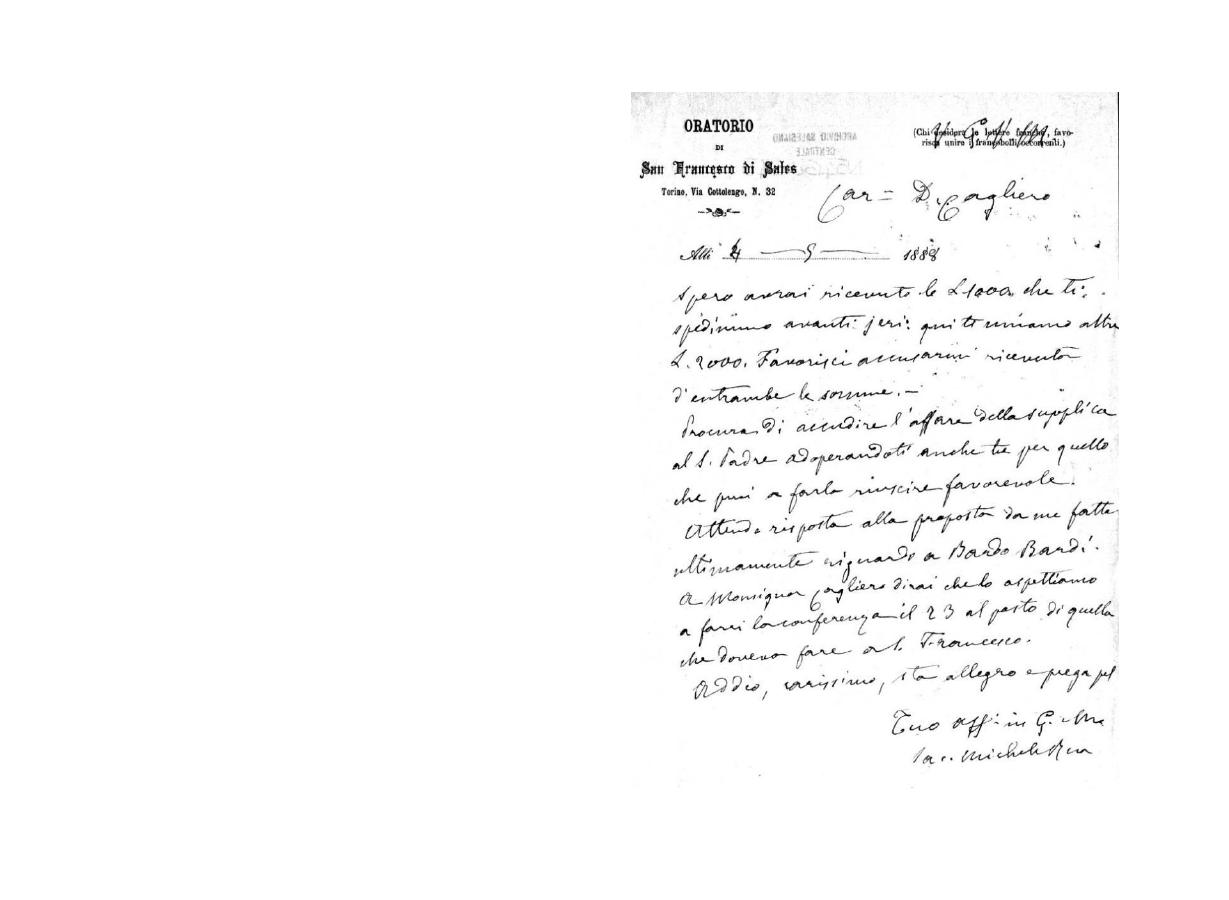 ORATORIO
DI
San Francesco di Sales
Torino, Via Cottolengo, N. 32
(Chi desidera le lettere franche, favo-
risca unire i francobolli occorrenti.)
ARCHIVIO SALESIANO
CENTRALE
Car = D. Cagliero
Alli 4 — 5 — 1888
Spero avrai ricevuto le L 1000 che ti
spedimmo avanti jeri: qui ti uniamo altre
L. 2000. Favorisci accusarmi ricevuta
d'entrambe le somme. —
Procura di accudire l'affare della supplica
al S. Padre adoperandoti anche tu per quello
che puoi a farla riuscire favorevole.
Attendo risposta alla proposta da me fatta
ultimamente riguardo a Bardo Bardi.
A Monsignor Cagliero dirai che lo aspettiamo
a farci la conferenza il 23 al posto di quella
che doveva fare a S. Francesco.
Addio, carissimo, sta allegro e prega pel
Tuo aff. in G. e Ma
Sac. Michele Rua